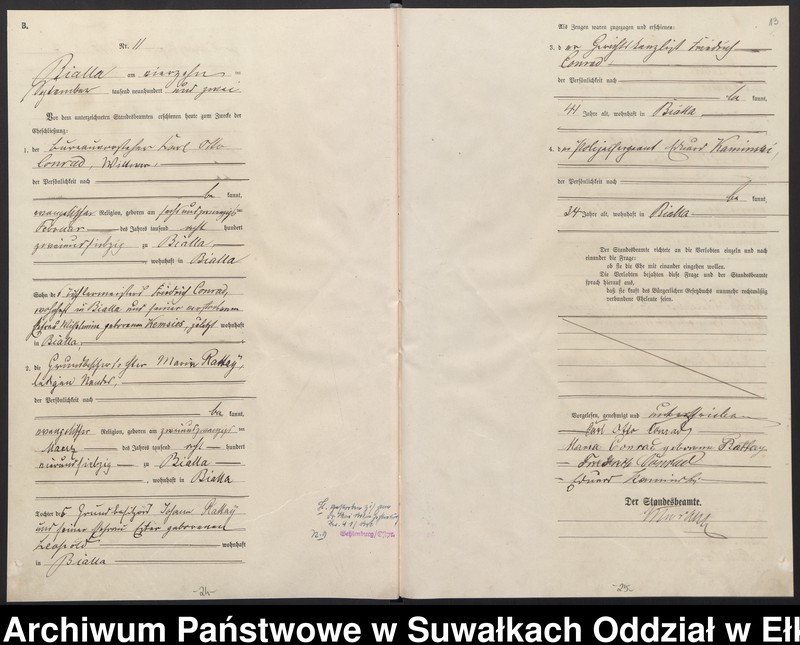 B.
Nr. 11
Bialla am vierzehn ten
September tausend neunhundert und zwei
Vor dem unterzeichneten Standesbeamten erschienen heute zum Zwecke der
Eheschließung:
1. der Bureauvorsteher Karl Otto
Conrad, Witwer,
der Persönlichkeit nach
be kannt,
evangelischer Religion, geboren am sechsundzwanzigsten
Februar des Jahres tausend acht hundert
zweiundsiebzig zu Bialla
, wohnhaft in Bialla
Sohn des Friedrich Conrad,
wohnhaft in Bialla und seiner verstorbenen
Ehefrau Wilhelmine geborenen Kensios, zuletzt wohnhaft
in Bialla,
2. die Grundbesitzertochter Marie Rattay,
ledigen Standes,
der Persönlichkeit nach
be kannt,
evangelischer Religion, geboren am
Maerz des Jahres tausend acht hundert
neunundsiebzig zu Bialla
, wohnhaft in Bialla
Tochter des Grundbesitzers Johann Rattay
und seiner Ehefrau Ester geborenen
Leopold wohnhaft
in Bialla
-24-
13
Als Zeugen waren zugezogen und erschienen:
3. der Gerichtskanzlist Friedrich
Conrad
der Persönlichkeit nach
be kannt,
41 Jahre alt, wohnhaft in Bialla
4. der Polizeisergeant Eduard Kaminski,
der Persönlichkeit nach
be kannt,
34 Jahre alt, wohnhaft in Bialla
Der Standesbeamte richtete an die Verlobten einzeln und nach
einander die Frage:
ob sie die Ehe mit einander eingehen wollen.
Die Verlobten bejahten diese Frage und der Standesbeamte
sprach hierauf aus,
daß sie kraft des Bürgerlichen Gesetzbuchs nunmehr rechtmäßig
verbundene Eheleute seien.
Vorgelesen, genehmigt und unterschrieben
Karl Otto Conrad
Marie Conrad geborene Rattay
Friedrich Conrad
Eduard Kaminski
Der Standesbeamte.
-25-
Archiwum Państwowe w Suwałkach Oddział w Ełk